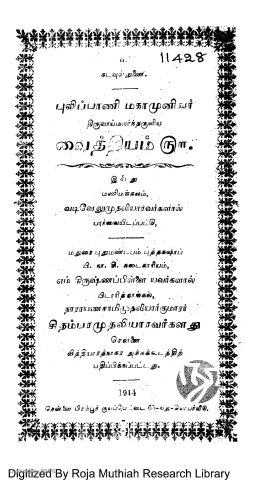 உ
11428
கடவுள் துணை.
புலிப்பாணி மகாமுனிவர்
திருவாய்மலர்ந்தருளிய
வைத்தியம் ௫௱.
இஃது
மணிமங்கலம்,
வடிவேலுமுதலியாரவர்களால்
பார்வையிடப்பட்டு,
மதுரை புதுமண்டபம் புத்தகஷாப்
பி. நா. சி. கடைகாரியம்,
எம். கிருஷ்ணப்பிள்ளை யவர்களால்
நாராயணசாமிமுதலியார்குமாரர்
சிதம்பரமுதலியாரவர்களது
சென்னை
வித்தியாரத்நாகர அச்சுக்கூடத்திற்
பதிப்பிக்கப்பட்டது.
1914
சென்னை
Digitized By Roja Muthiah Research Library